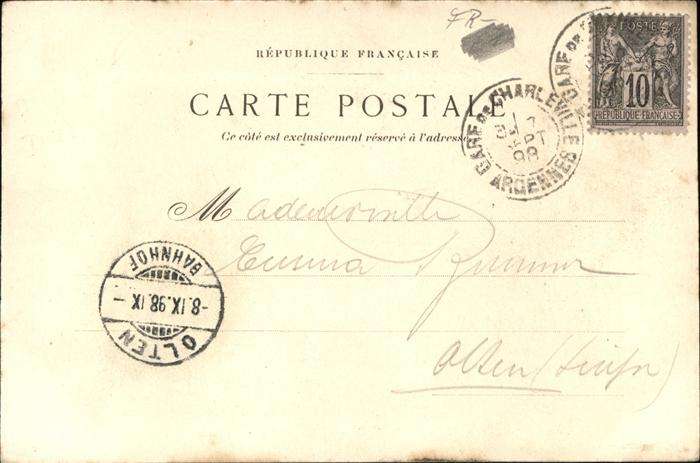 FR-
RÉPUBLIQUE FRANÇAISE
CARTE POSTALE
Ce côté est exclusivement réservé à l'adresse
POSTES
10
RÉPUBLIQUE FRANÇAISE
GARE DE CHARLEVILLE
7
SEPT
98
ARDENNES
GARE DE
M
Olten (Suisse)
BAHNHOF
-8.IX.98.IX-
OLTEN